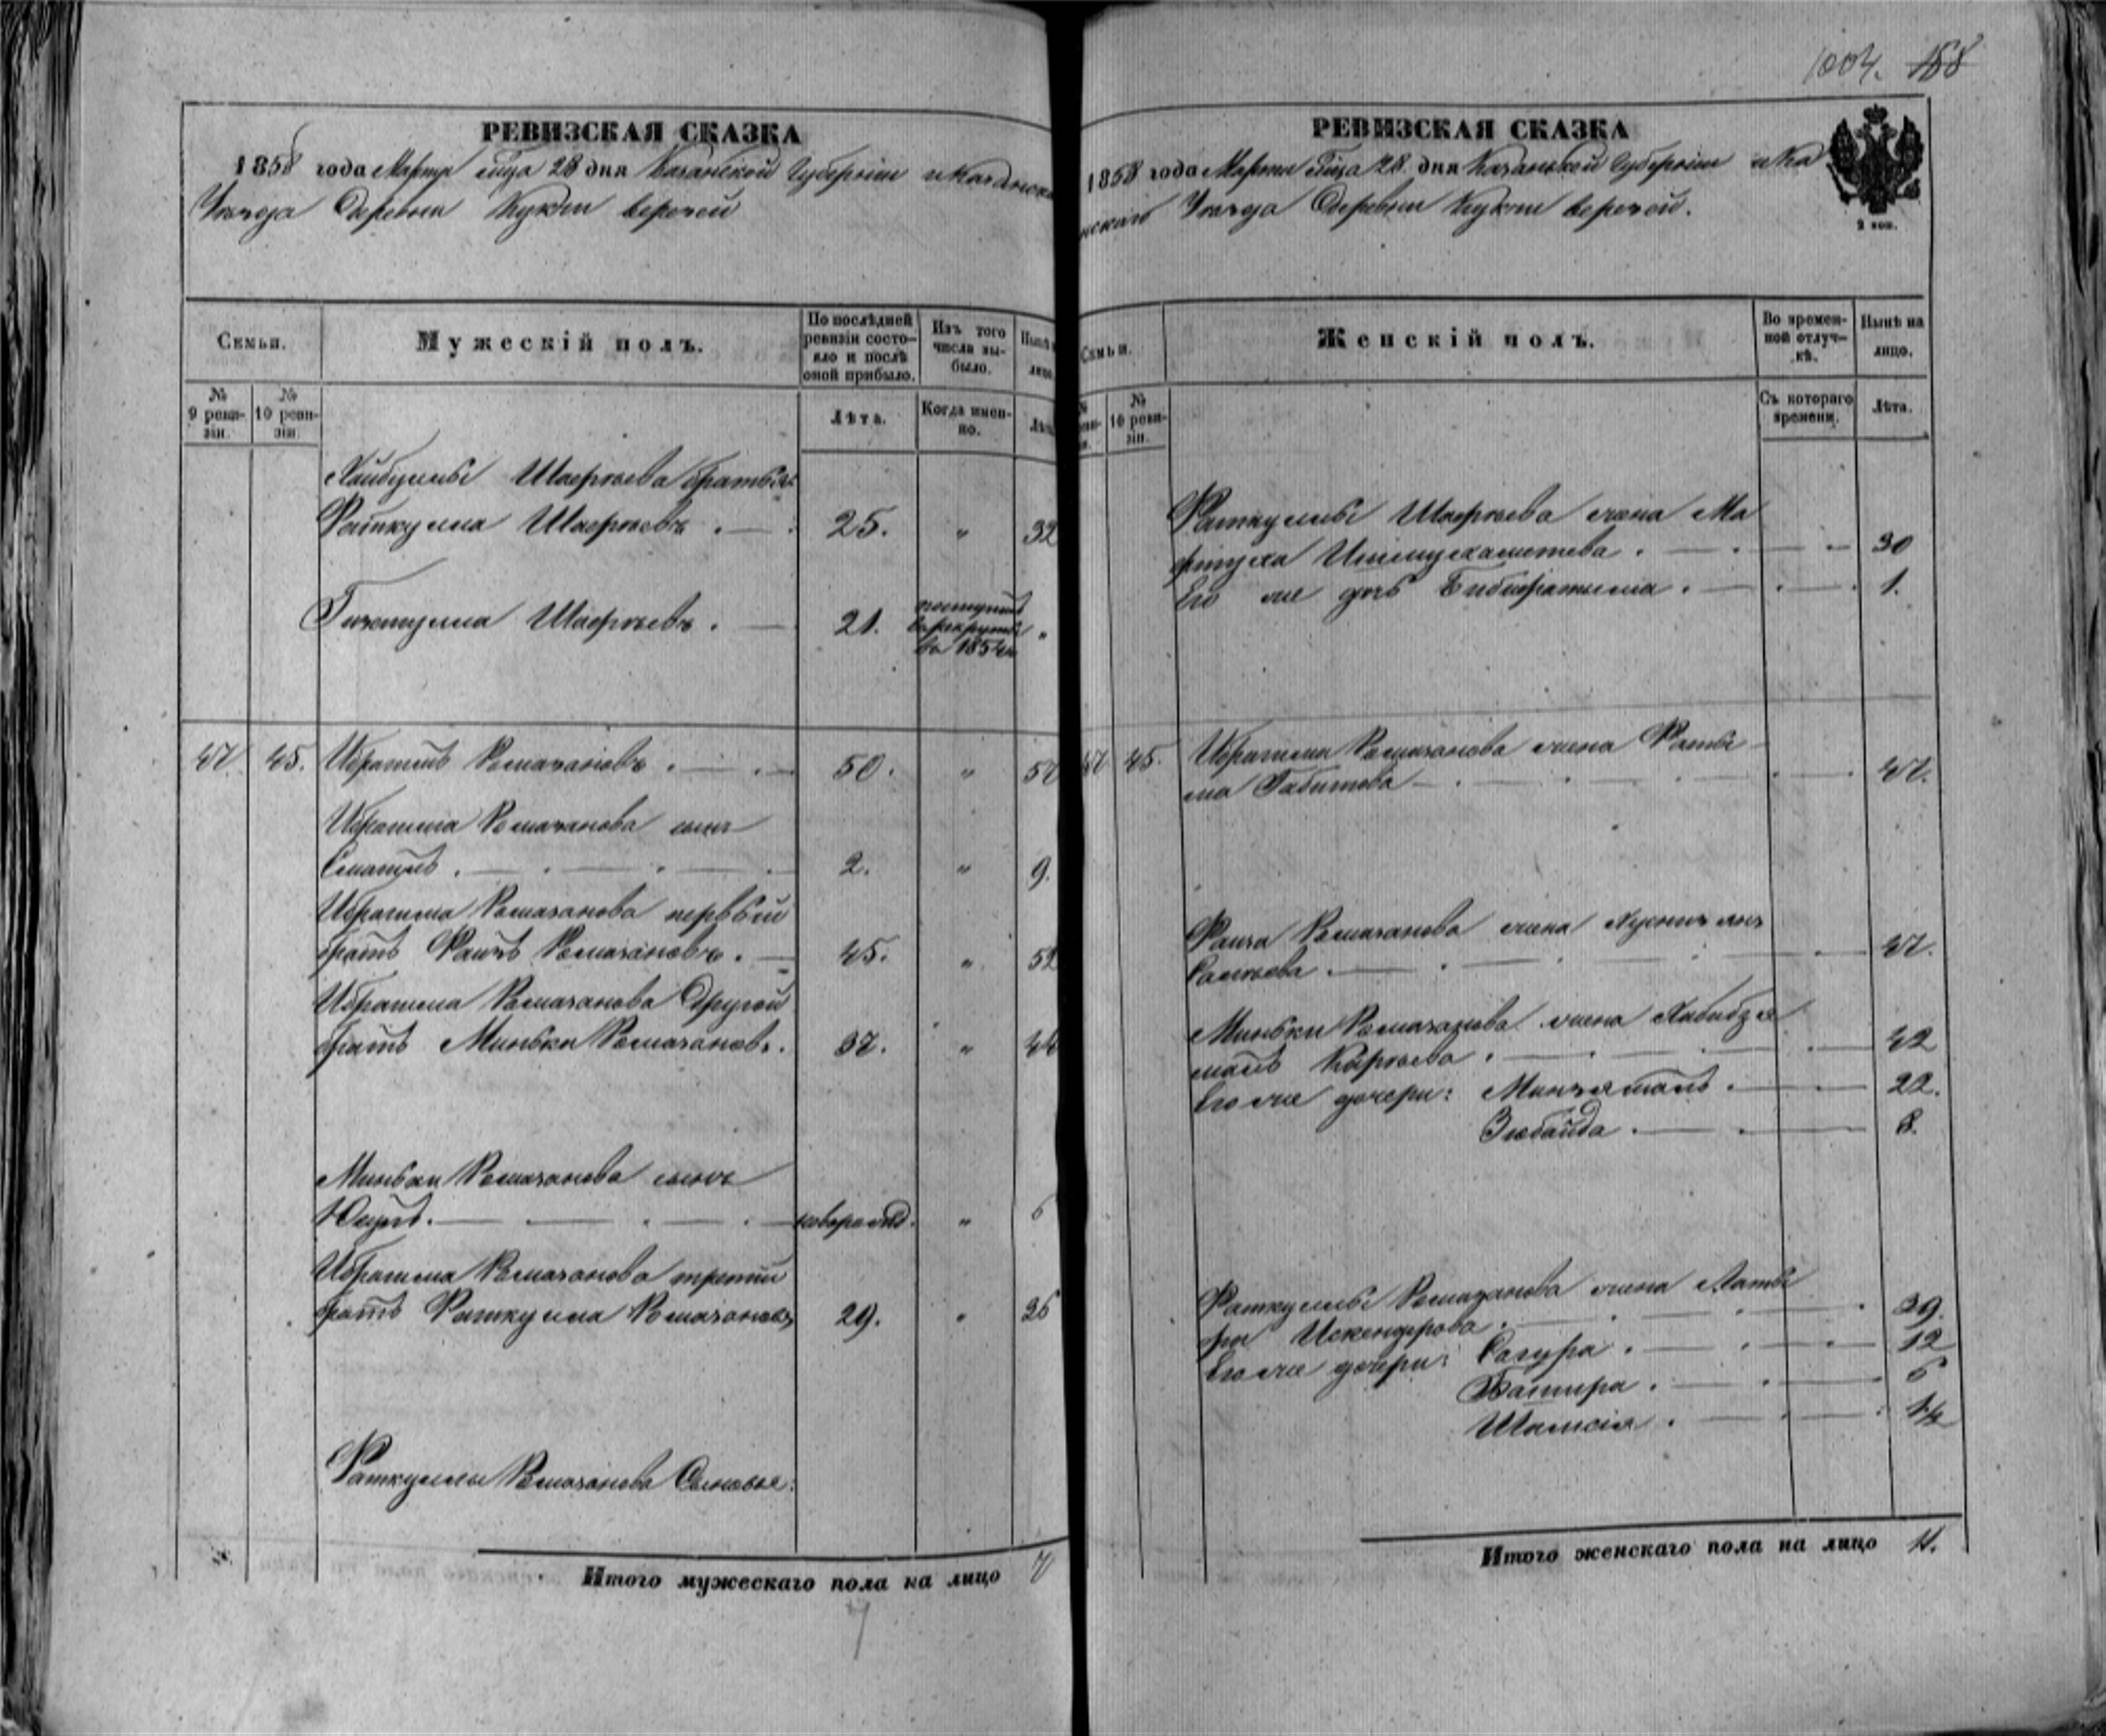 1004. 158
РЕВИЗСКАЯ СКАЗКА
1858 года Марта м̃ца 28 дня Казанской Губернии и Казанска
Уезда Деревни Кукчи верезей
Семьи.
Мужескій полъ.
По послѣдней ревизіи состояло и послѣ оной прибыло.
Изъ того числа выбыло.
Нынѣ лицо
№ 9 ревизіи.
№ 10 ревизіи.
Лѣта.
Когда именно.
Лѣта
Хайбуллы Шафѣева братья:
Фаткулла Шафѣевъ . 25. " 32
Гизетулла Шафѣевъ . 21. поступилъ в рекруты в 1854 "
47. 45. Ибрагимъ Рамазановъ . 50. " 57
Ибрагима Рамазанова сынъ
Смагилъ . 2. " 9.
Ибрагима Рамазанова первый
братъ Фаизъ Рамазановъ . 45. " 52
Ибрагима Рамазанова другой
братъ Миньки Рамазановъ . 37. " 44
Миньки Рамазанова сынъ
Юсупъ . новорожд. " 6
Ибрагима Рамазанова третій
братъ Фаткулла Рамазановъ 29. " 36
Фаткуллы Рамазанова Сыновья:
Итого мужескаго пола на лицо 7
7
РЕВИЗСКАЯ СКАЗКА
1858 года Марта м̃ца 28 дня Казанской Губернии и Ка
нскаго Уезда Деревни Кукчи верезей.
2 коп.
Семьи.
Женскій полъ.
Во временной отлучкѣ.
Нынѣ на лицо.
№ 10 ревизіи.
Съ котораго времени.
Лѣта.
Фаткуллы Шафѣева жена Ма
фтуха Ишмухаметева . 30
Его же дочь Бибифатыма . 1.
47 45. Ибрагима Рамазанова жена Фаты
ма Габитова 47.
Фаиза Рамазанова жена
Салѣева . 47.
Миньки Рамазанова жена Хабибзя
малъ 42
Его же дочери: Минзямалъ . 22.
Зюбайда . 8.
Фаткуллы Рамазанова жена Латы
фа Искендерова . 39.
Его же дочери: Сагура . 12
Башира . 6
Шамсія . 1/2
Итого женскаго пола на лицо 11.